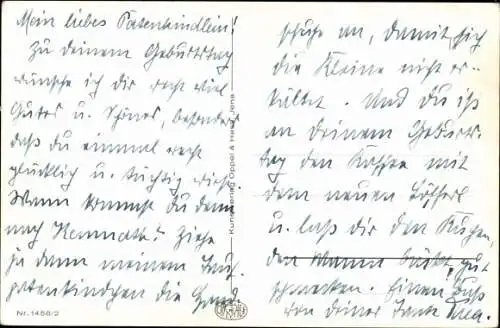 Mein liebes Patenkindlein!
Zu deinem Geburtstag
wünsche ich dir recht viel
Gutes u. Schönes, besonders
daß du einmal recht
glücklich u. tüchtig wirst.
Wann kommst Du denn
nach Kemnath? Ziehe
ja dann meinem Tauf-
patenkindchen die Hand-
schuhe an, damit sich
die Kleine nicht er-
kältet. Und Du iß
an deinem Geburts-
tag den Kaffee mit
dem neuen Löfferl
u. laß dir den Kuchen
den Mama bäckt, gut
schmecken. Einen Kuß
von deiner Tante
Kunstverlag Oppel & Hess, Jena
Nr. 1458/2